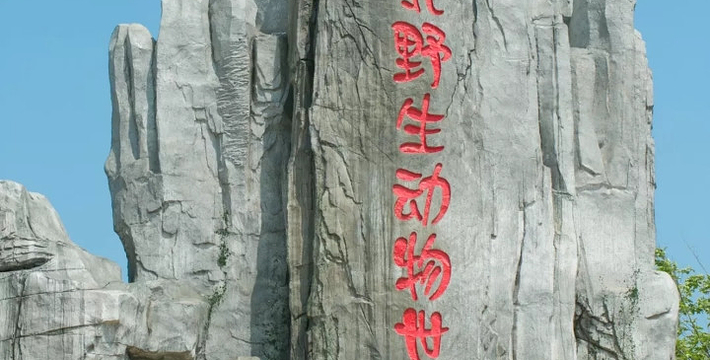 野生动物世